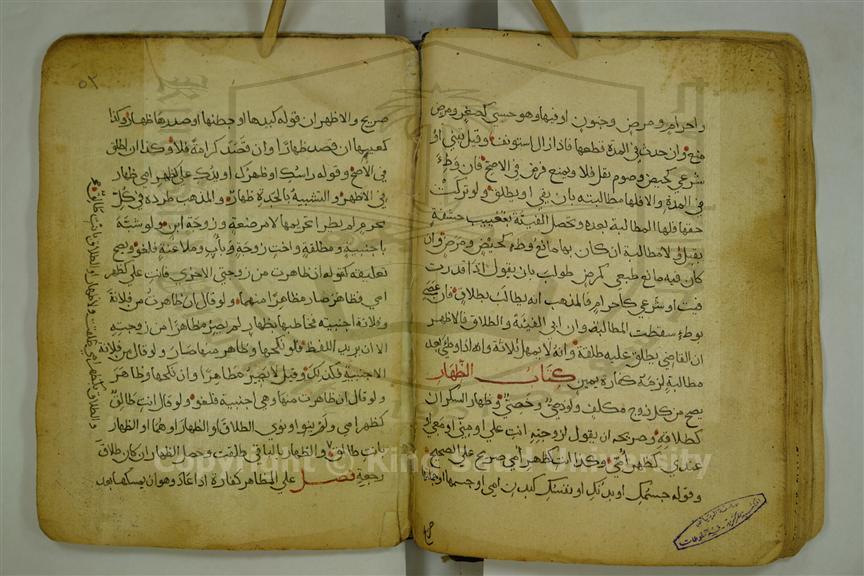 واحرام ومرض وجنون او فيها وهو حسي كصغر ومرض
منع وان حدث في المدة قطعها فاذا زال استونفت وقيل تبني او
شرعي كحيض وصوم نفل فلا ويمنع فرض في الاصح فان وطئ
في المدة والا فلها مطالبته بان يفي او يطلق ولو تركت
حقها فلها المطالبة بعده وتحصل الفيئة بتغييب حشفة
بقبل ولا مطالبة ان كان بها مانع وطء كحيض ومرض وان
كان فيه مانع طبيعي كمرض طولب بان يقول اذا قدرت
فئت او شرعي كاحرام فالمذهب انه يطالب بطلاق فان عصى
بوطء سقطت المطالبة وان ابى الفيئة والطلاق فالاظهر
ان القاضي يطلق عليه طلقة وانه لا يمهل ثلاثة وانه اذا وطئ بعد
مطالبة لزمه كفارة يمين كتاب الظهار
يصح من كل زوج مكلف ولو ذمي وخصي وظهار السكران
كطلاقه وصريحه ان يقول لزوجته انت علي او مني او معي او
عندي كظهر امي وكذا انت كظهر امي صريح على الصحيح
وقوله جسمك او بدنك او نفسك كبدن امي او جسمها او جملتها
صريح والاظهر ان قوله كيدها او بطنها او صدرها ظهار وكذا
كعينها ان قصد ظهارا وان قصد كرامة فلا وكذا ان اطلق
في الاصح وقوله راسك او ظهرك او يدك علي كظهر امي ظهار
في الاظهر والتشبيه بالجدة ظهار والمذهب طرده في كل
محرم لم يطرا تحريمها لا مرضعة وزوجة ابن ولو شبه
باجنبية ومطلقة واخت زوجة وباب وملاعنة فلغو ويصح
تعليقه كقوله ان ظاهرت من زوجتي الاخرى فانت علي كظهر
امي فظاهر صار مظاهرا منهما ولو قال ان ظاهرت من فلانة
وفلانة اجنبية فخاطبها بظهار لم يصر مظاهرا من زوجته
الا ان يريد اللفظ فلو نكحها وظاهر منها صار ولو قال من فلانة
الاجنبية فكذلك وقيل لا يصير مظاهرا وان نكحها وظاهر
ولو قال ان ظاهرت منها وهي اجنبية فلغو ولو قال انت طالق
كظهر امي ولم ينو او نوى الطلاق او الظهار او هما او الظهار
بانت طالق والظهار بالباقي طلقت وحصل الظهار ان كان طلاق
رجعة فصل على المظاهر كفارة اذا عاد وهو ان يمسكها بعد